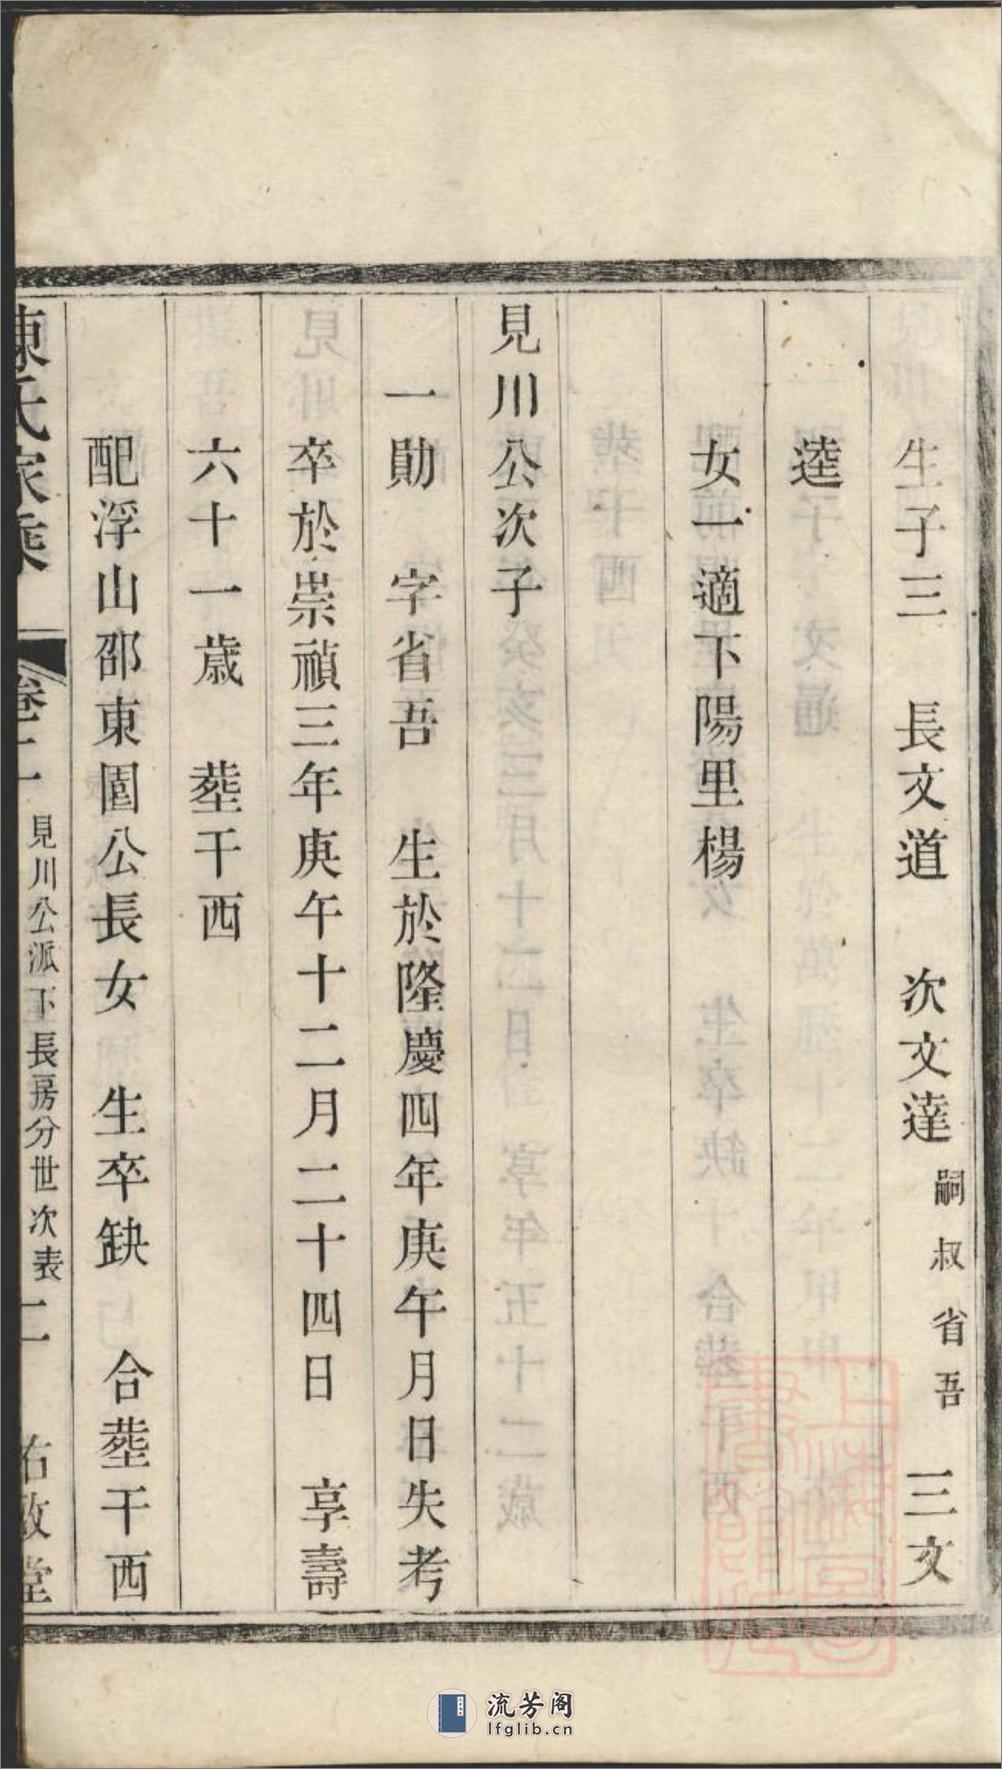 生子三　長文道　次文達 嗣叔省吾　三文
逵
女一適下陽里楊
見川公次子
一勛　字省吾　生於隆慶四年庚午月日失考
卒於崇禎三年庚午十二月二十四日　享壽
六十一歲　塟干西
配浮山邵東園公長女　生卒缺　合塟干西
陳氏家乘　卷二　見川公派下長房分世次表　二　佑啟堂
流芳阁
lfglib.cn